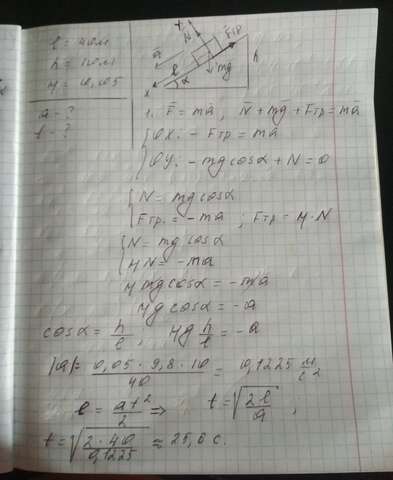 l = 40м
h = 10м
μ = 0,05
a - ?
t - ?
y N Fтр
a h
x l α mg
1. F = ma ; N + mg + Fтр = ma
OX: - Fтр = ma
OY: - mg cosα + N = 0
N = mg cosα
Fтр. = - ma ; Fтр = μ · N
N = mg cosα
μN = - ma
μ mg cosα = - ma
μg cosα = - a
cosα = h/l , μg h/l = - a
|a| = 0,05 · 9,8 · 10 / 40 = 0,1225 м/с²
l = at²/2 => t = √(2l/a) ,
t = √(2 · 40 / 0,1225) ≈ 25,6 с.